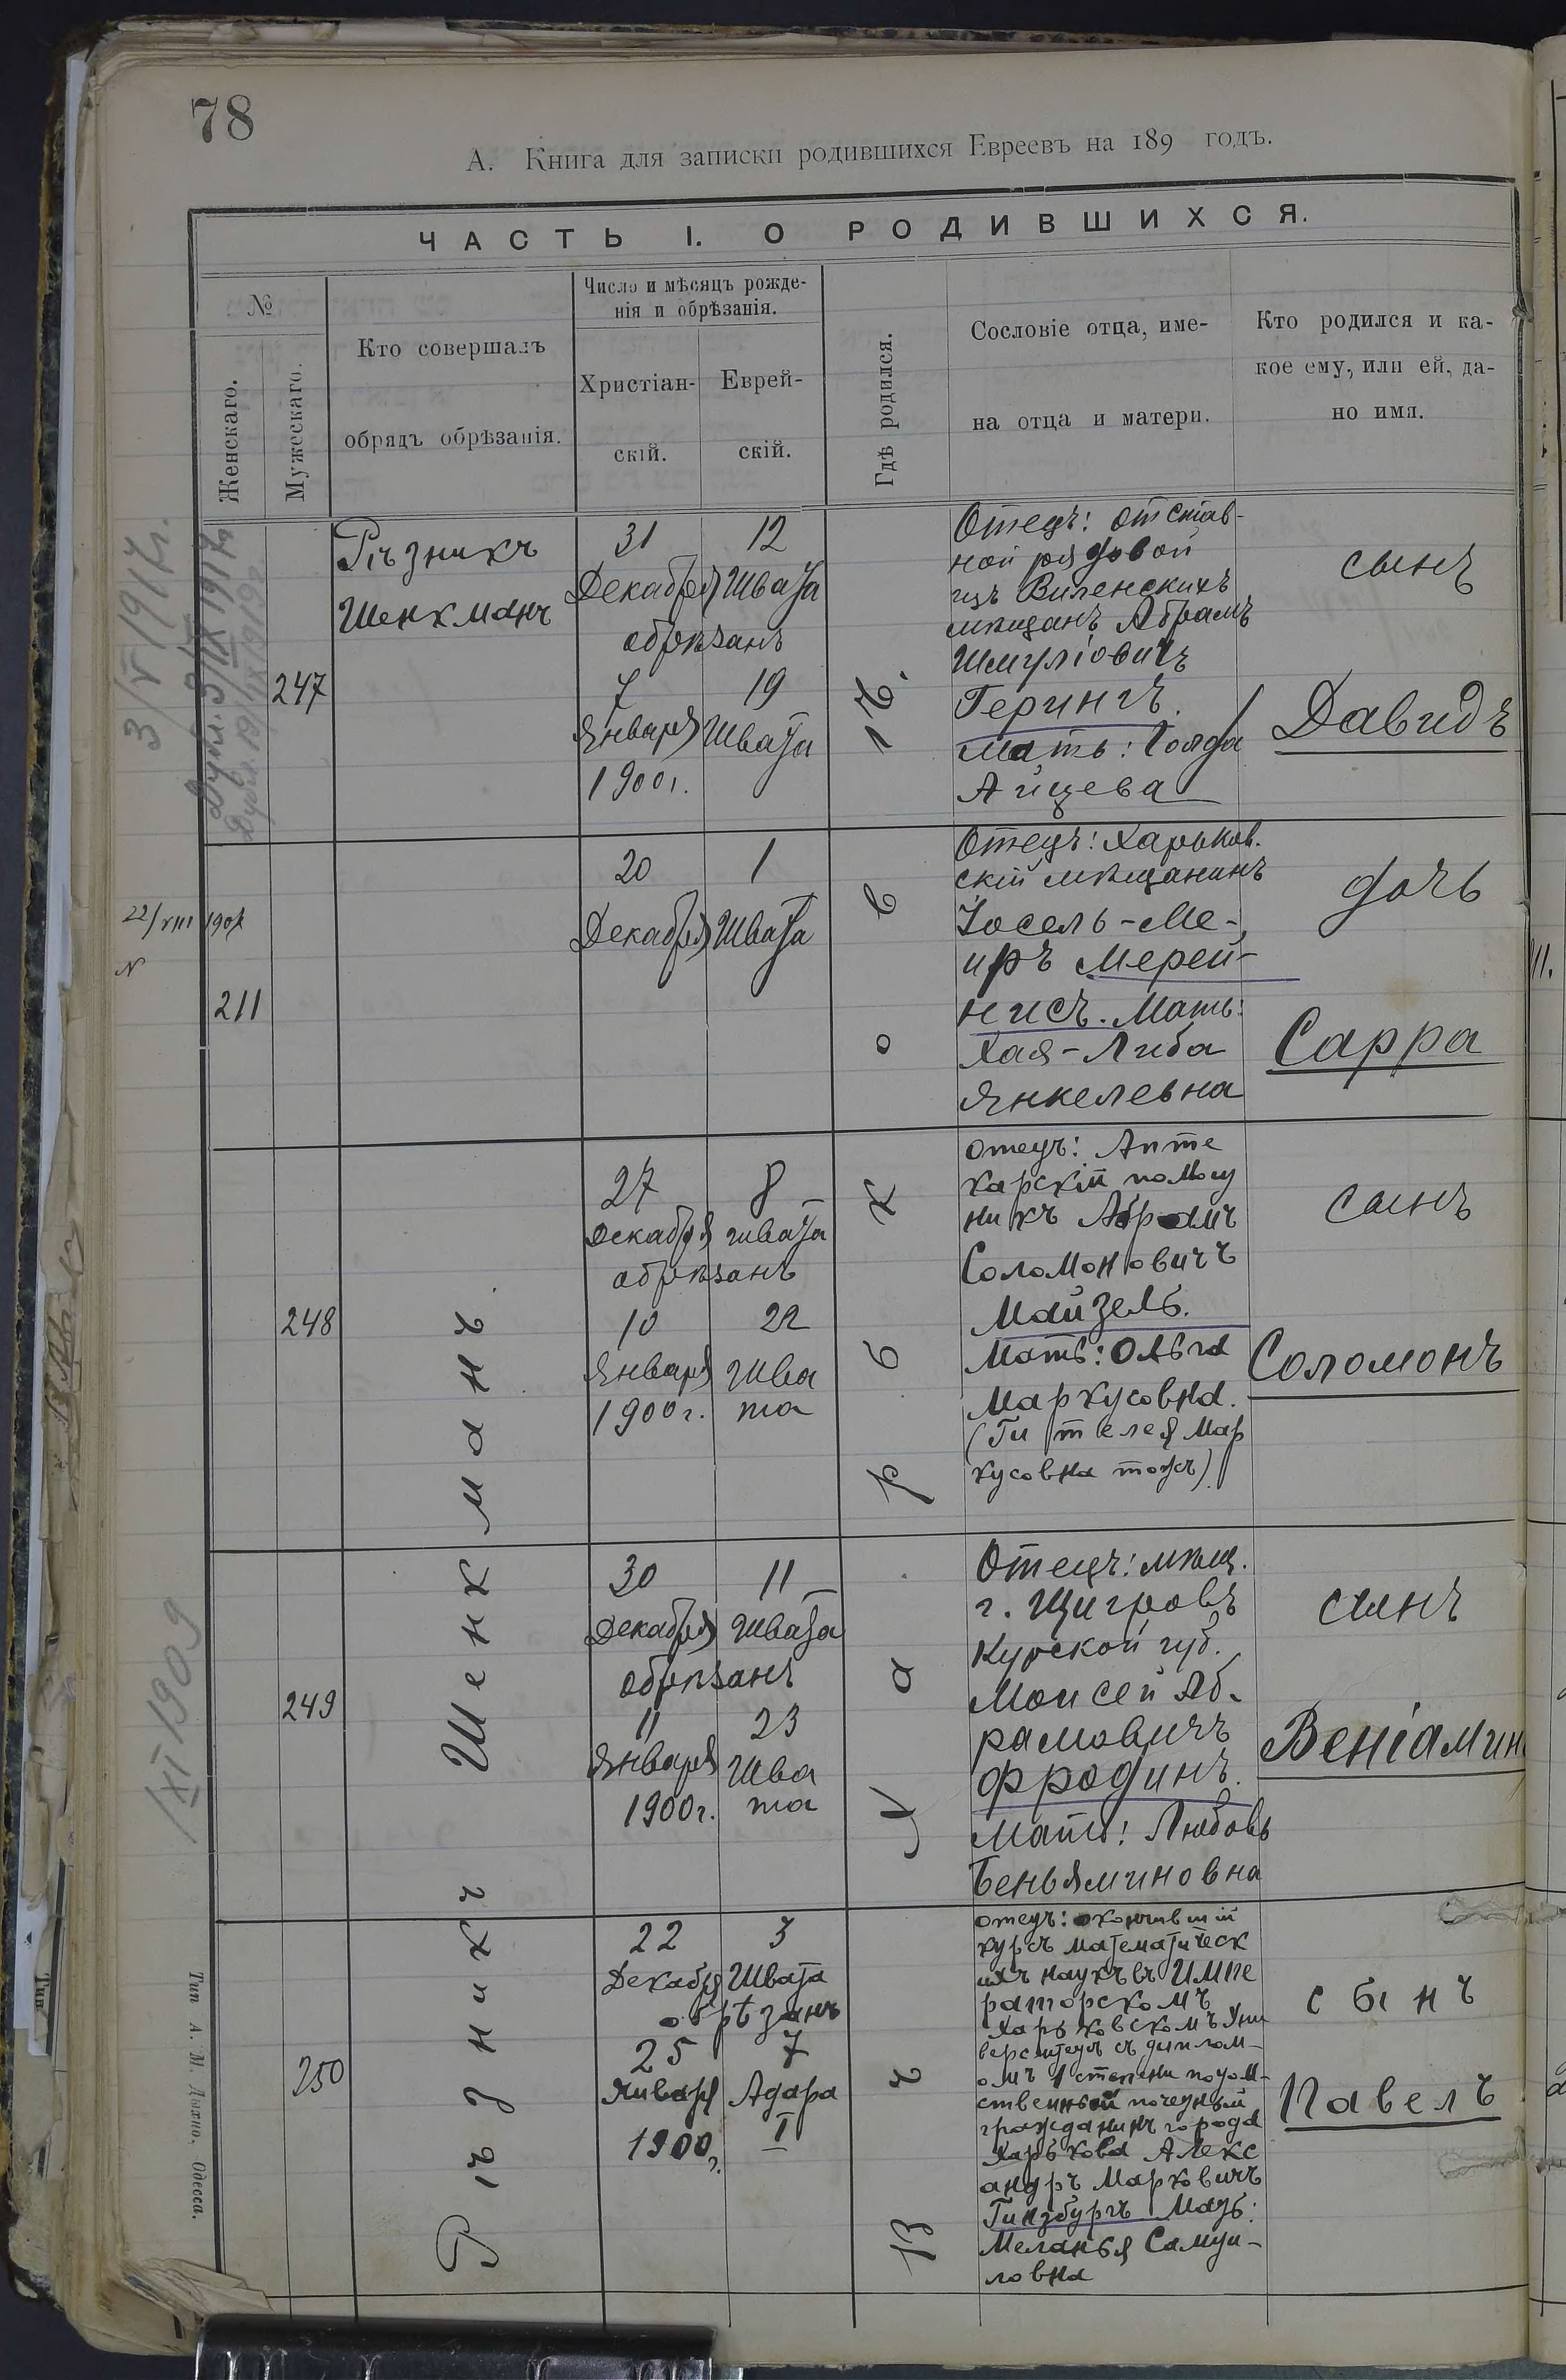 78
А. Книга для записки родившихся Евреевъ на 189 годъ.
ЧАСТЬ I. О РОДИВШИХСЯ.
№
Женскаго.
Мужескаго.
Кто совершалъ
обрядъ обрѣзанія.
Число и мѣсяцъ рожде-
нія и обрѣзанія.
Христіан-
скій.
Еврей-
скій.
Гдѣ родился.
Сословіе отца, име-
на отца и матери.
Кто родился и ка-
кое ему, или ей, да-
но имя.
3/VI 1917г.
Дупл. 5/IX 1917г
247
Рѣзникъ
Шенкманъ
31 12
Декабря Швата
обрѣзанъ
7 19
Января Швата
1900г.
Отецъ: отстав-
ной рядовой
изъ Виленскихъ
мѣщанъ Абрамъ
Шмуліовичъ
Герингъ.
Мать: Голда
Айцева
сынъ
Давидъ
22/VIII 1907
N
211
20 1
Декабря Швата
Отецъ: Харьков.
скій мѣщанинъ
Іосель-Ме-
иръ Мерей-
нисъ. Мать:
Хая-Либа
Янкелевна
дочь
Сарра
248
27 8
Декабря Швата
обрѣзанъ
10 22
Января Шва
1900г. та
отецъ: Апте
карскій помощ
никъ Абрамъ
Соломоновичъ
Майзель.
Мать: Ольга
Маркусовна.
(Гителея Мар
кусовна тожъ)
сынъ
Соломонъ
1 XI 1909
249
30 11
Декабря Швата
обрѣзанъ
11 23
Января Шва
1900г. та
Отецъ: мѣщ.
г. Щигровъ
Курской губ.
Моисей Аб-
рамовичъ
Фрадинъ.
Мать: Любовь
Беньяминовна
сынъ
Веніамин
250
22 3
Декабря Швата
обрѣзанъ
25 7
Января Адара
1900г. I
отецъ: окончившій
курсъ математическ
ихъ наукъ въ Импе
раторскомъ
Харьковскомъ Уни
верситетѣ съ диплом-
омъ 1 степени потом-
ственный почетный
гражданинъ города
Харькова Алекс
андръ Марковичъ
Гинзбургъ Мать:
Меланья Самуи-
ловна
сынъ
Павелъ
Рѣзникъ Шенкманъ.
Въ г. Харьковѣ.
Тип. А. М. Дыхно, Одесса.